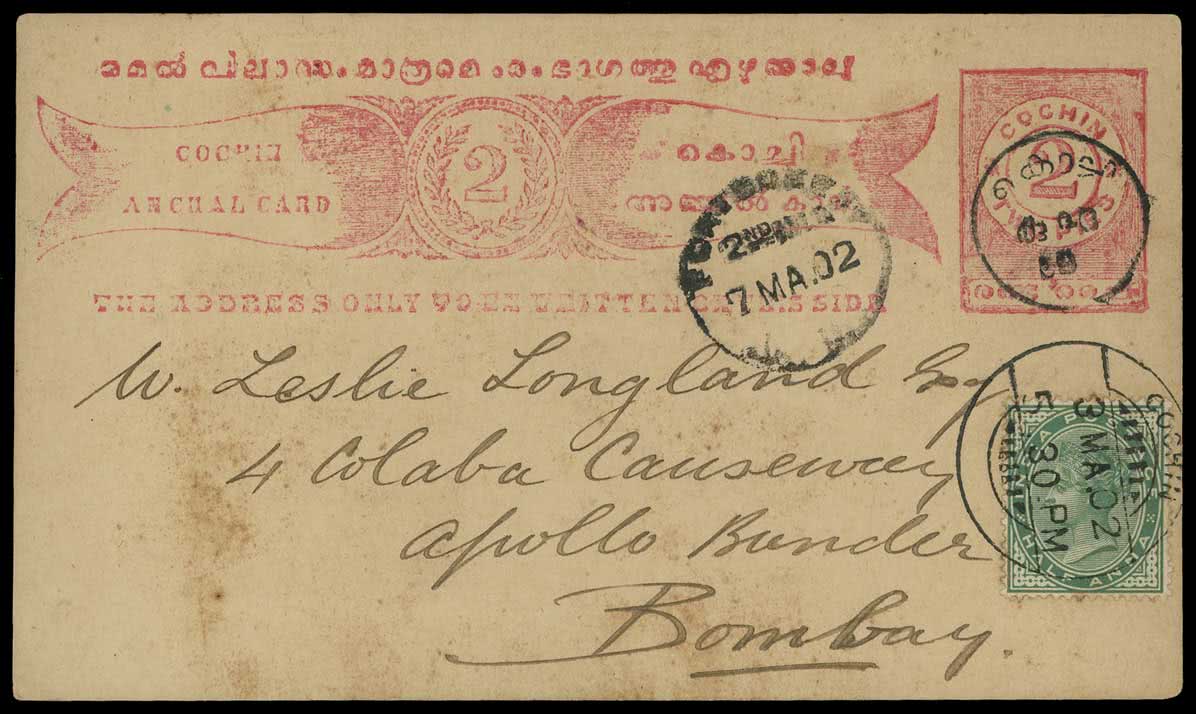 മേൽ വിലാസം മാത്രമെ ഈ ഭാഗത്തു എഴുതാവു
COCHIN
ANCHAL CARD
2
കൊച്ചി
അഞ്ചൽ കാർ
THE ADDRESS ONLY TO BE WRITTEN ON THIS SIDE
COCHIN
2
2ND
7 MA.02
W. Leslie Longland Esq
4 Colaba Causeway
Apollo Bunder
Bombay.
COCHIN
3 MA.02
5 30.PM
HALF ANNA